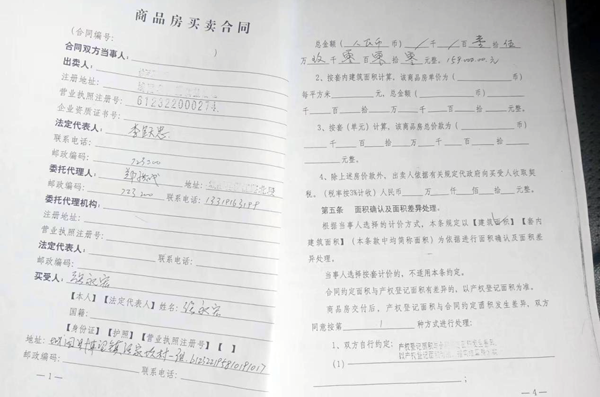 商品房买卖合同
(合同编号: )
合同双方当事人:
出卖人:
注册地址:
营业执照注册号: 612322000274
企业资质证书号:
法定代表人:
联系电话:
邮政编码: 723200
委托代理人: 地址:
邮政编码: 723200 联系电话:
委托代理机构:
注册地址:
营业执照注册号:
法定代表人: 联系电话:
邮政编码:
买受人: 张永宏
【本人】【法定代表人】姓名: 张永宏
国籍:
【身份证】【护照】【营业执照注册号】【 】
地址:
邮政编码: 联系电话:
— 1 —
总金额( 人民币 币) / 千 / 百 壹 拾 伍
万 玖 千 零 百 零 拾 零 元整。159000.00元
2、按套内建筑面积计算,该商品房单价为( 币)
每平方米 元,总金额( 币)
千 百 拾 万 千 百 拾 元整。
3、按套(单元)计算,该商品房总价款为( 币)
千 百 拾 万 千 百 拾 元整。
4、除上述房价款外,出卖人依据有关规定代政府向买受人收取契
税。(税率按3%计收)人民币 万 仟 佰 拾 元整。
第五条 面积确认及面积差异处理。
根据当事人选择的计价方式,本条规定以【建筑面积】【套内
建筑面积】(本条款中均简称面积)为依据进行面积确认及面积差
异处理。
当事人选择按套计价的,不适用本条约定。
合同约定面积与产权登记面积有差异的,以产权登记面积为准。
商品房交付后,产权登记面积与合同约定面积发生差异,双方
同意按第 1 种方式进行处理:
1、双方自行约定:
(1) ;
— 4 —